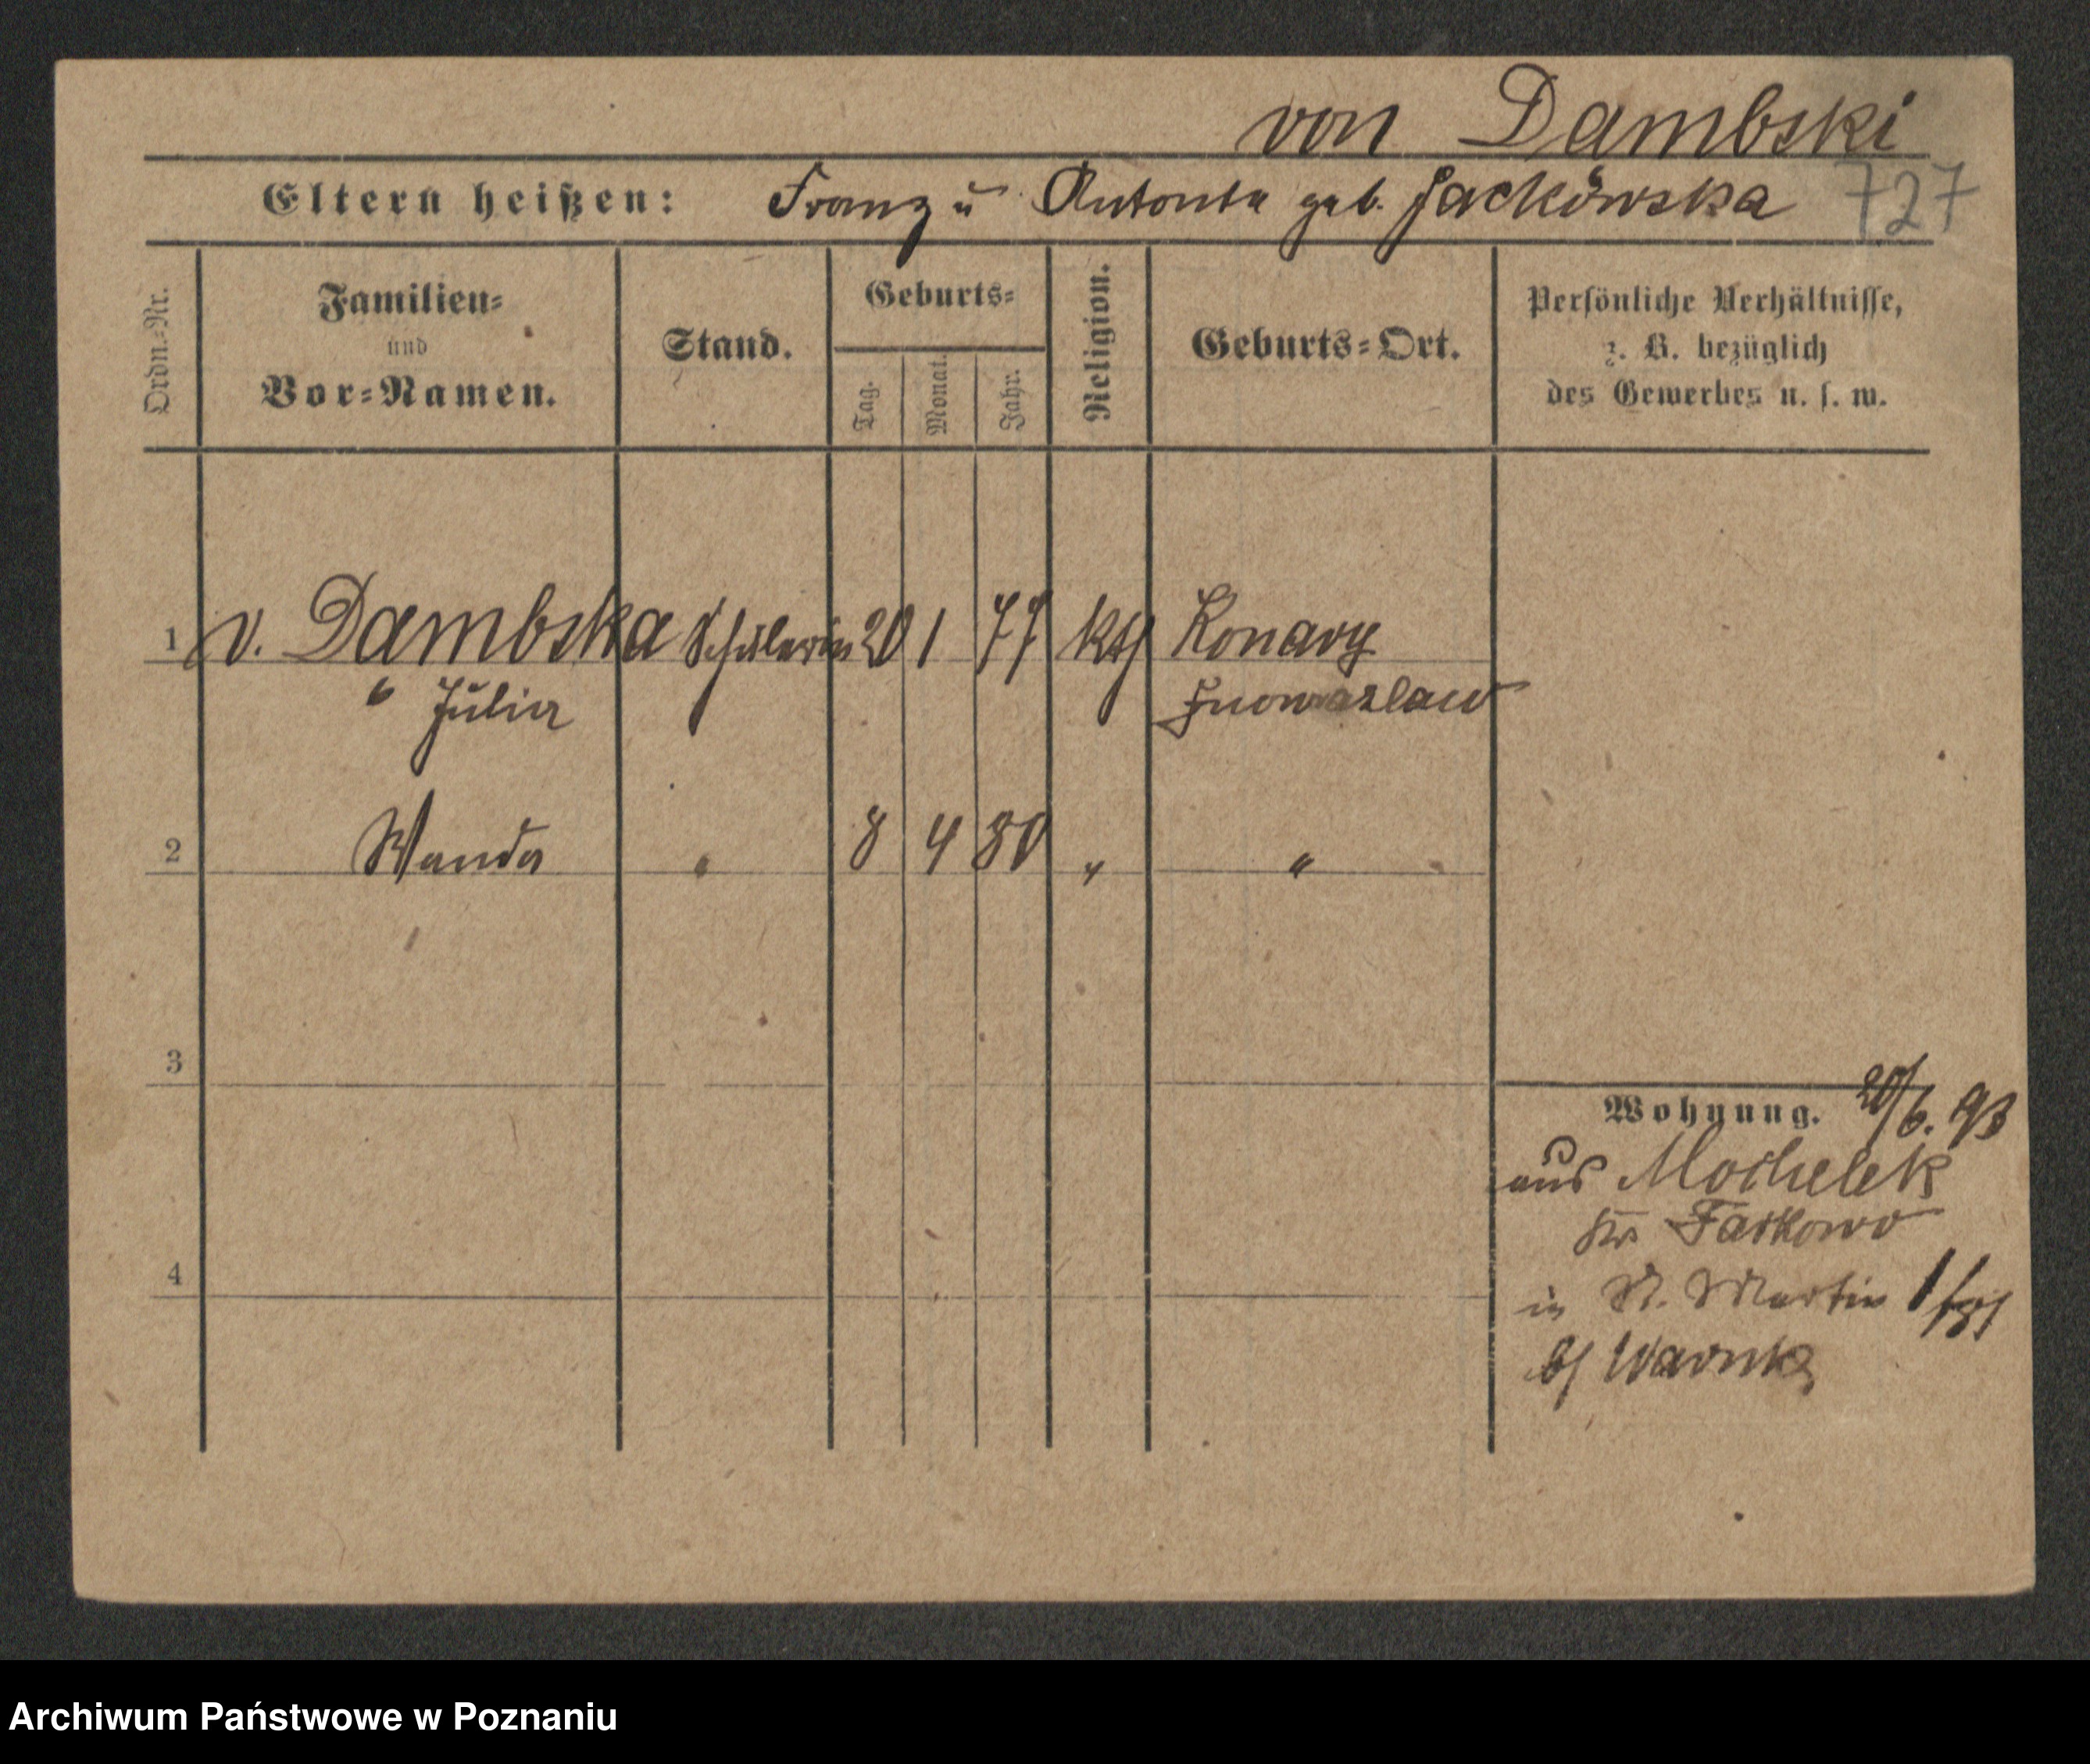 von Dambski
Eltern heißen: Franz u Antonta geb. Jackowska 727
Ordn.-Nr.
Familien-
und
Vor-Namen.
Stand.
Geburts-
Tag.
Monat.
Jahr.
Religion.
Geburts-Ort.
Persönliche Verhältnisse,
z. B. bezüglich
des Gewerbes u. s. w.
1 v. Dambska Schülerin 20 1 77 kth Konary
" Julia Inowrazlaw
2 Wanda " 8 4 80 " "
3
Wohnung. 20/6. 93
aus Mochelek
Farkowo
4
in St. Martin
b/
Archiwum Państwowe w Poznaniu